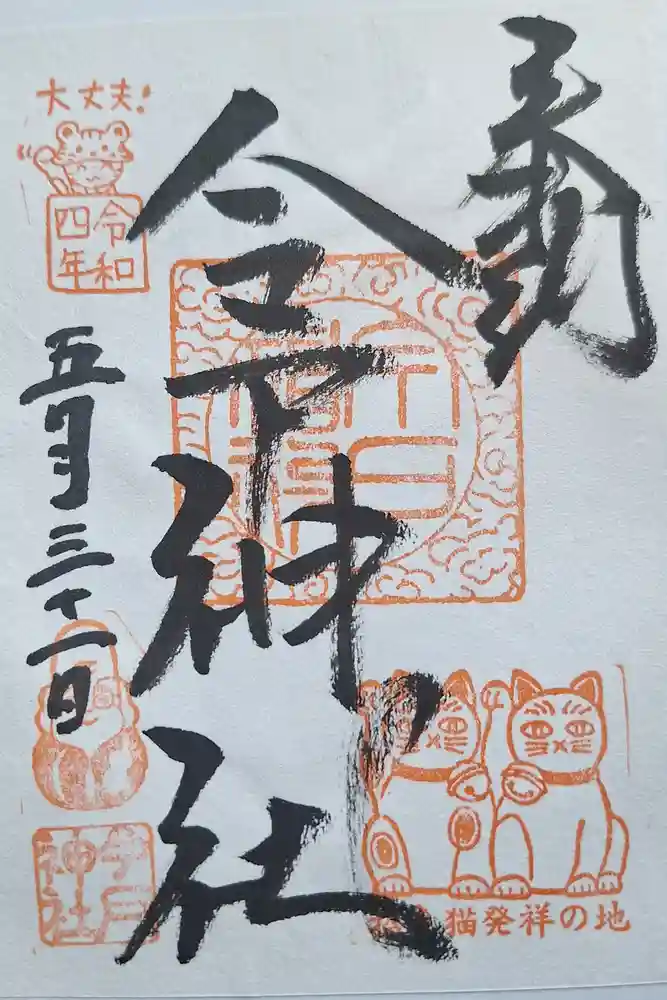 奉拝
今戸神社
大丈夫!
令和
四年
五月三十一日
今戸
神社
招き猫発祥の地